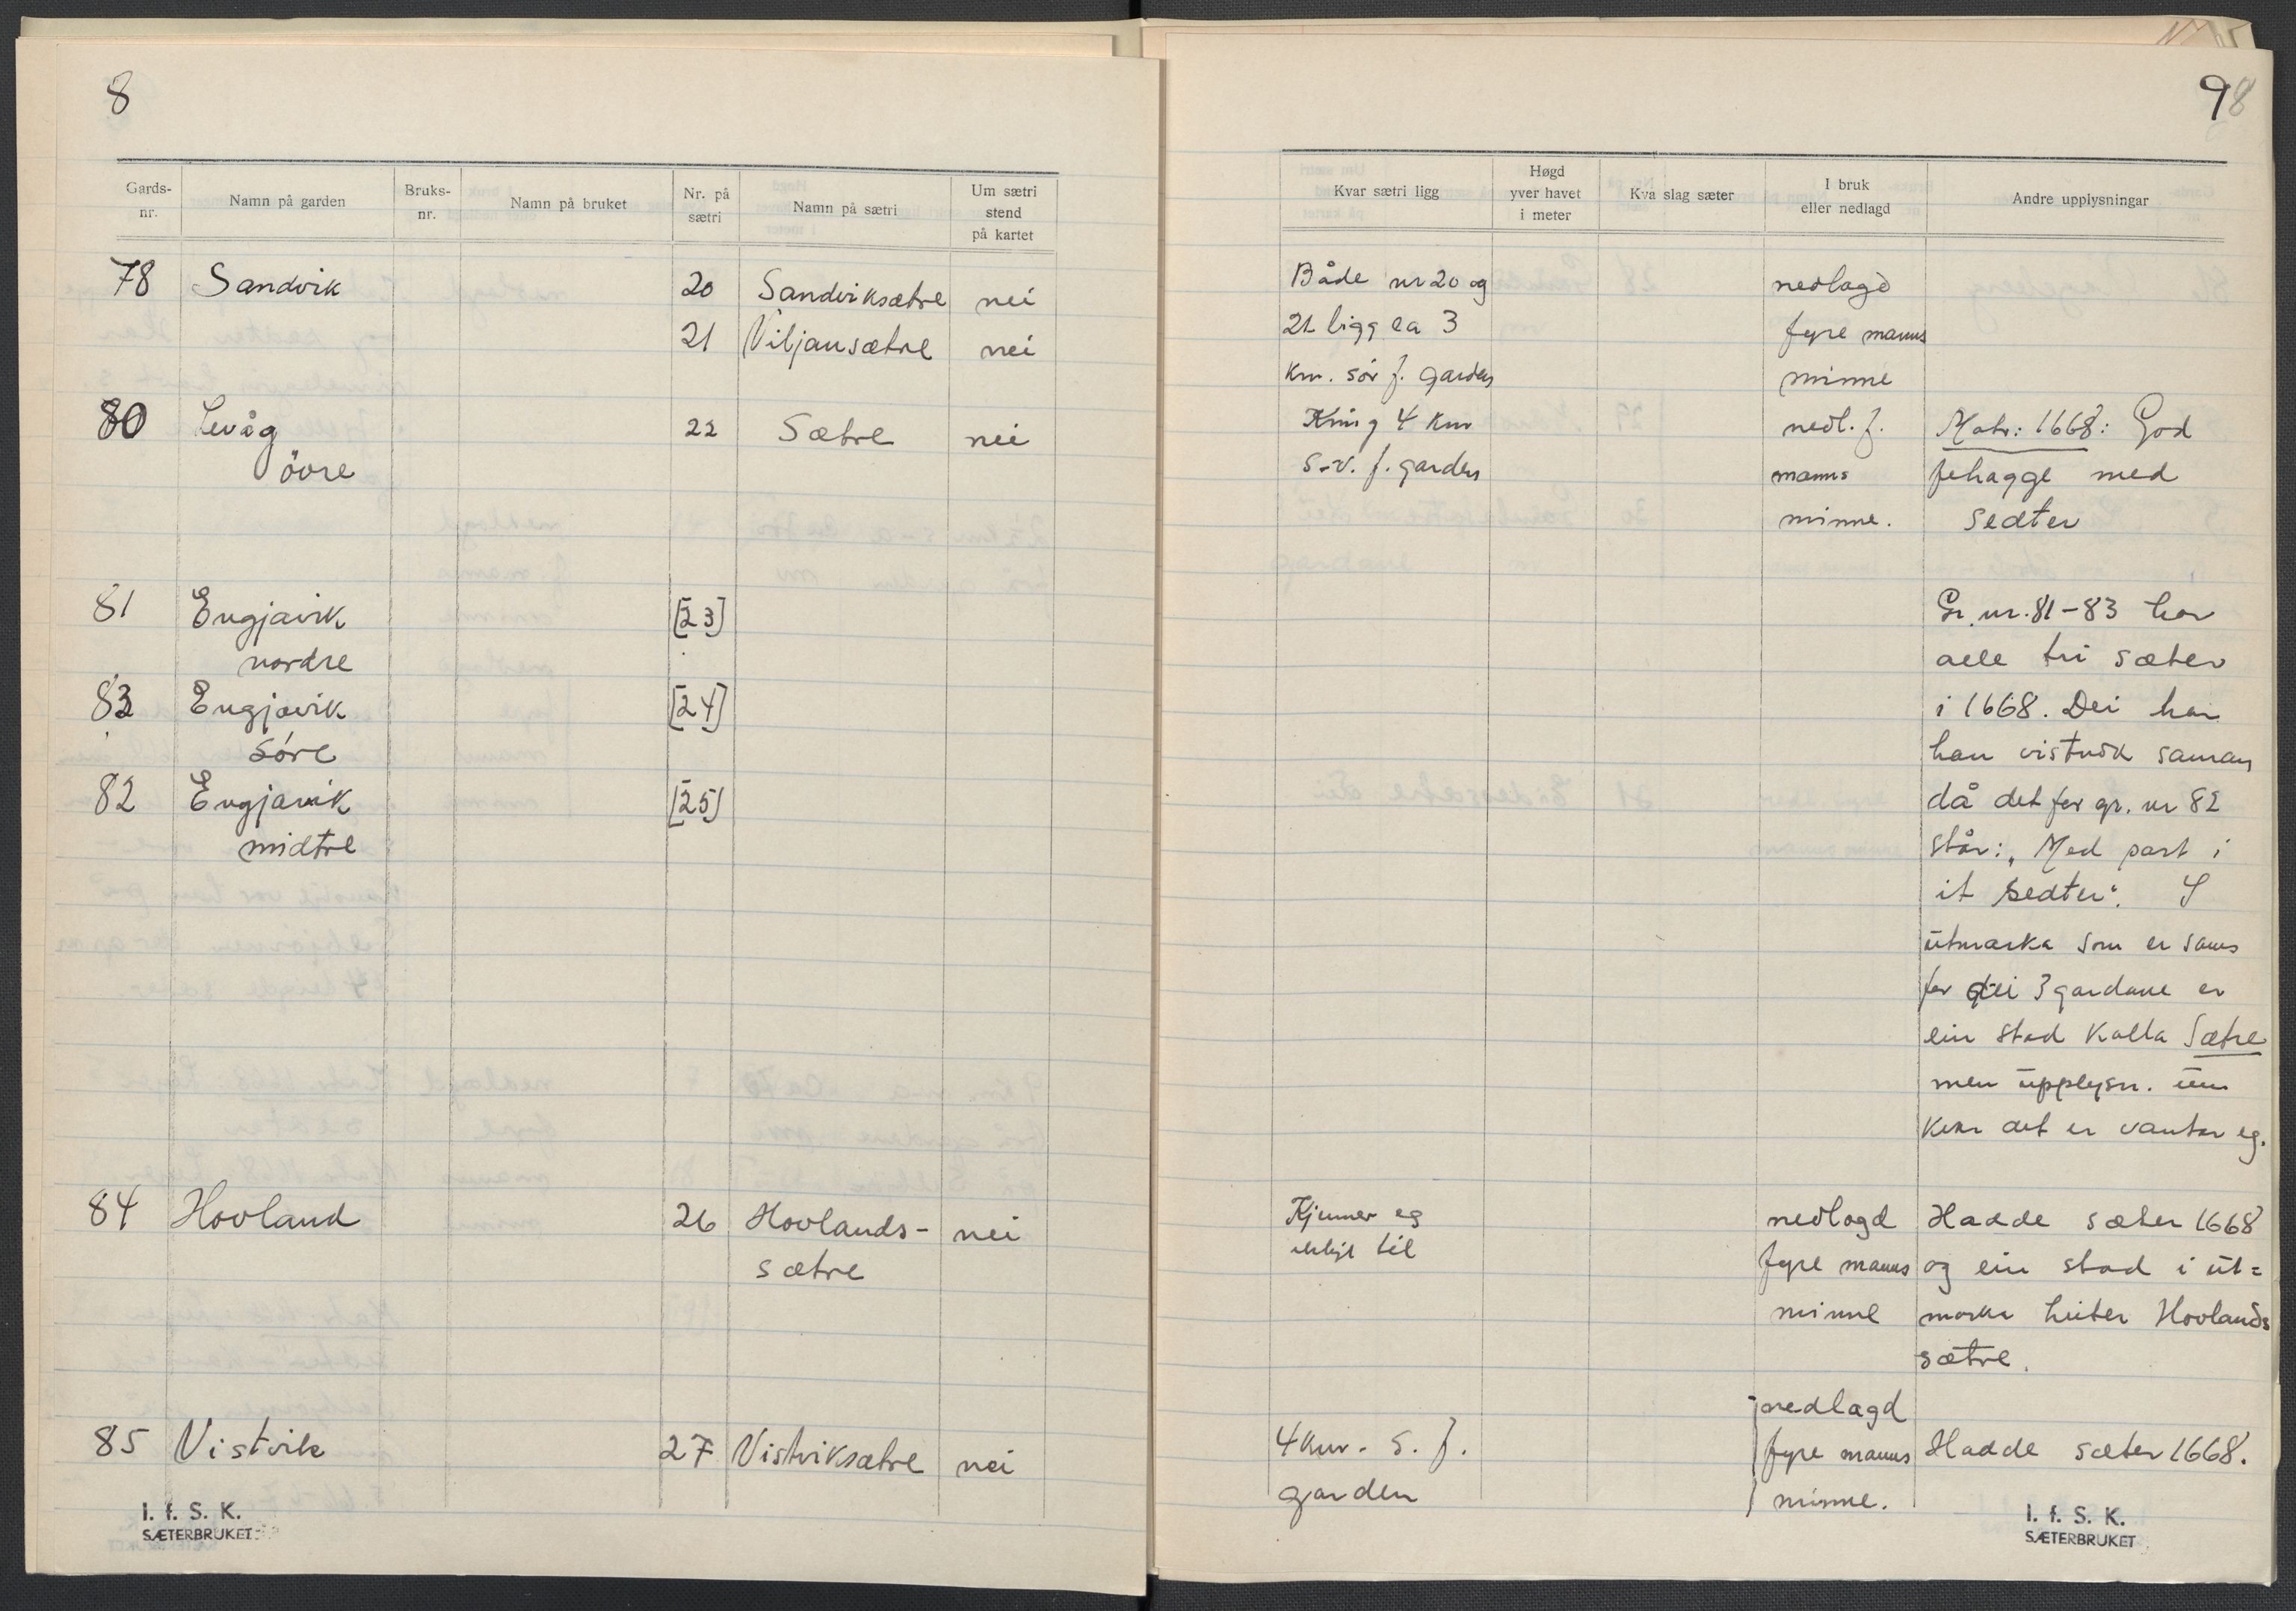 8
Gards-
nr.
Namn på garden
Bruks-
nr.
Namn på bruket
Nr. på
sætri
Namn på sætri
Um sætri
stend
på kartet
78 Sandvik 20 Sandviksætre nei
21 Viljansætre nei
80 Levåg 22 Sætre nei
övre
81 Engjavik [23]
nordre
83 Engjavik [24]
søre
82 Engjavik [25]
midtre
84 Hovland 26 Hovlands- nei
sætre
85 Vistvik 27 Vistviksætre nei
I. f. S. K.
SÆTERBRUKET
98
Kvar sætri ligg
Høgd
yver havet
i meter
Kva slag sæter
I bruk
eller nedlagd
Andre upplysningar
Både nr 20 og nedlagd
21 ligg ca 3 fyre manns
km. sör f. garden minne
Kring 4 km nedl. f. Matr: 1668: God
s-v. f. garden manns fehagge med
minne. sedter
Gr. nr. 81-83 har
alle tri sæter
i 1668. Dei har
han vistnok saman
då det for gr. nr 82
står: „Med part i
it sedter“. I
utmarka som er sams
for dei 3 gardane er
ein stad kalla Sætre
men upplysn. um
kvar det er vantar eg.
Kjenner eg nedlagd Hadde sæter 1668
ikkje til fyre manns og ein stad i ut=
minne marka heiter Hovlands
sætre.
nedlagd
4 km. s. f. fyre manns Hadde sæter 1668.
garden minne.
I. f. S. K.
SÆTERBRUKET